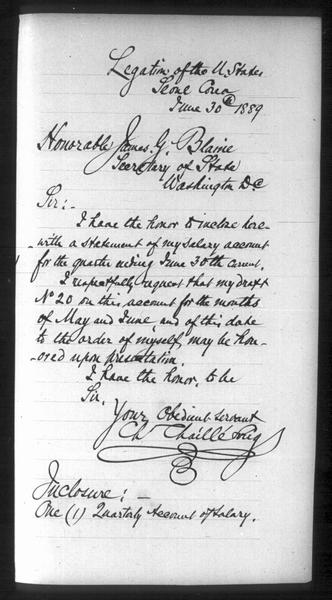 Legation of the U. States
Seoul Corea
June 30th 1889
Honorable James. G. Blaine
Secretary of State
Washington D.C
Sir:-
I have the honor to inclose here-
-with a statement of my salary account
for the quarter ending June 30th current.
I respectfully request that my draft
No 20 on this account for the months
of May and June, and of this date
to the order of myself, may be hon-
-ored upon presentation.
I have the honor, to be
Sir,
Your Obedient servant
Ch Chaillé Long
Inclosure: -
One (1) Quarterly Account of Salary.